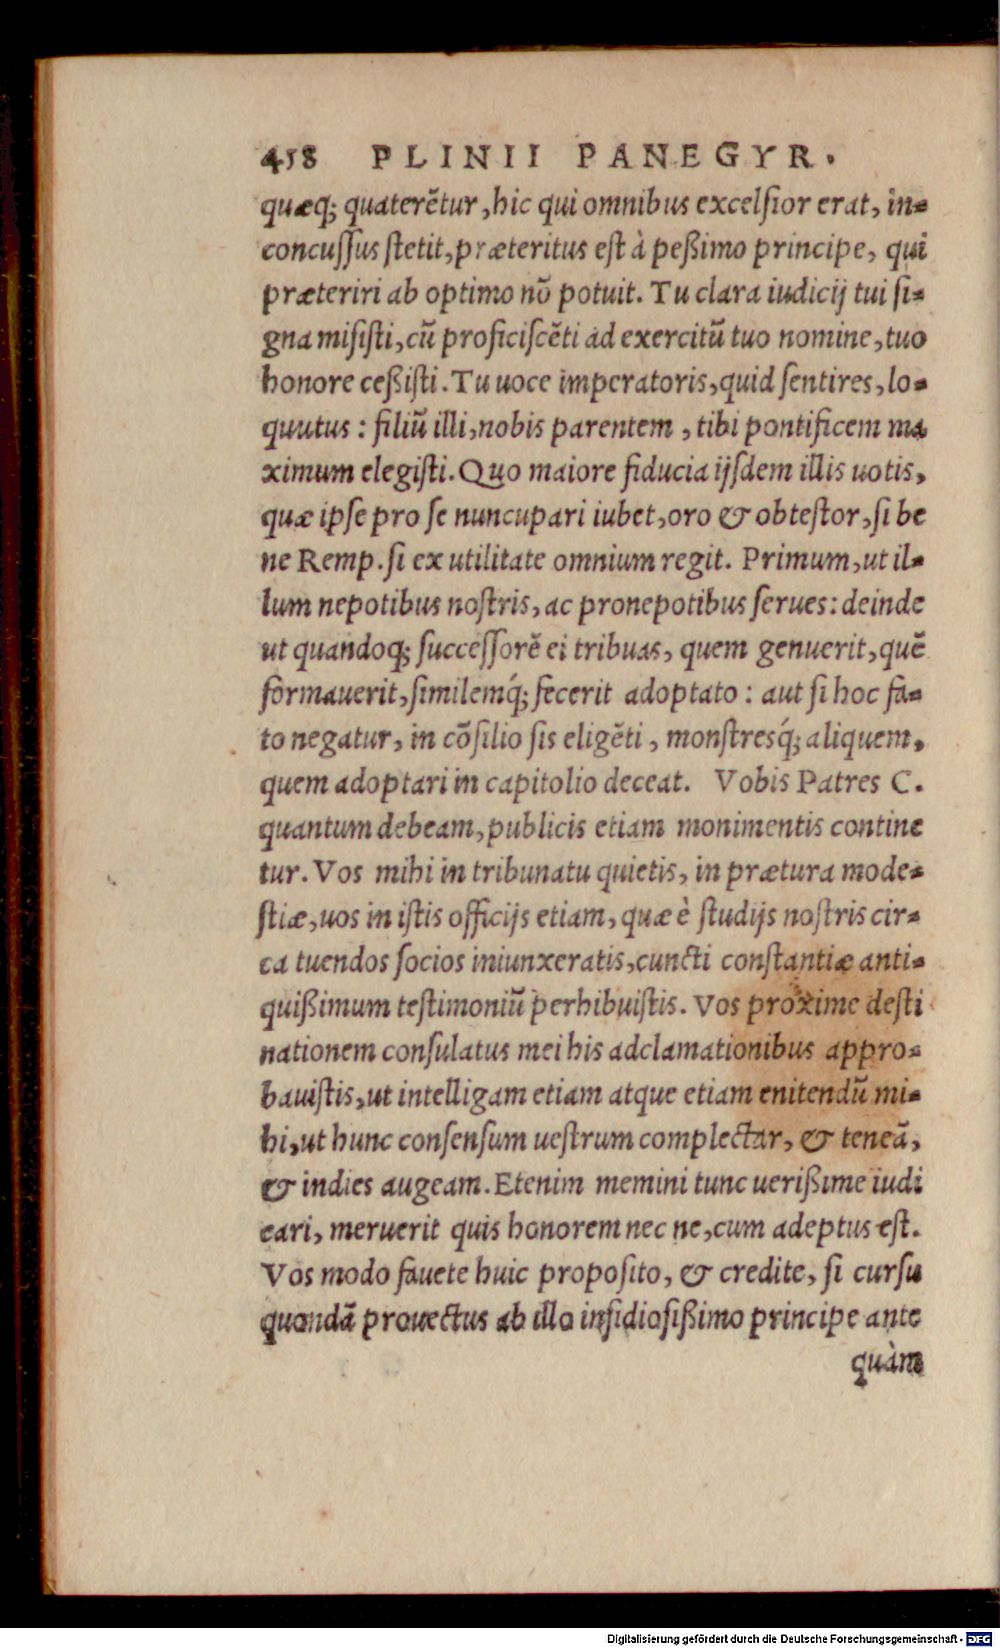 458 PLINII PANEGYR.
quæq; quaterẽtur, hic qui omnibus excelſior erat, in-
concuſſus ſtetit, præteritus eſt à peßimo principe, qui
præteriri ab optimo nõ potuit. Tu clara iudicij tui ſi-
gna miſiſti, cũ proficiſcẽti ad exercitũ tuo nomine, tuo
honore ceßiſti. Tu uoce imperatoris, quid ſentires, lo-
quutus: filiũ illi, nobis parentem, tibi pontificem ma
ximum elegiſti. Quo maiore fiducia ijſdem illis uotis,
quæ ipſe pro ſe nuncupari iubet, oro & obteſtor, ſi be
ne Remp. ſi ex utilitate omnium regit. Primum, ut il-
lum nepotibus noſtris, ac pronepotibus ſerues: deinde
ut quandoq; ſucceſſorẽ ei tribuas, quem genuerit, quẽ
formauerit, ſimilemq́; fecerit adoptato: aut ſi hoc fa-
to negatur, in cõſilio ſis eligẽti, monſtresq́; aliquem,
quem adoptari in capitolio deceat. Vobis Patres C.
quantum debeam, publicis etiam monimentis contine
tur. Vos mihi in tribunatu quietis, in prætura mode-
ſtiæ, uos in iſtis officijs etiam, quæ è ſtudijs noſtris cir-
ca tuendos ſocios iniunxeratis, cuncti conſtantiæ anti-
quißimum teſtimoniũ perhibuiſtis. Vos proxime deſti
nationem conſulatus mei his adclamationibus appro-
bauiſtis, ut intelligam etiam atque etiam enitendũ mi-
hi, ut hunc conſenſum ueſtrum complectar, & teneã,
& indies augeam. Etenim memini tunc uerißime iudi
cari, meruerit quis honorem nec ne, cum adeptus eſt.
Vos modo fauete huic propoſito, & credite, ſi curſu
quondã prouectus ab illo inſidioſißimo principe ante
quàm
Digitalisierung gefördert durch die Deutsche Forschungsgemeinschaft - DFG